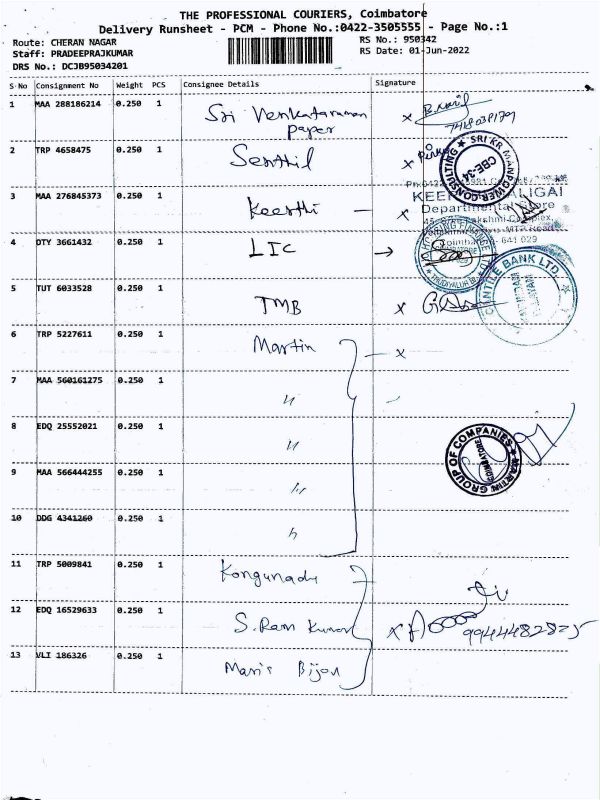 THE PROFESSIONAL COURIERS, Coimbatore
Delivery Runsheet - PCM - Phone No.:0422-3505555 - Page No.:1
Route: CHERAN NAGAR
RS No.: 950342
Staff: PRADEEPRAJKUMAR
RS Date: 01-Jun-2022
DRS No.: DCJB95034201
S No Consignment No Weight PCS Consignee Details Signature
1 MAA 288186214 0.250 1 Sri Venkataraman
paper
2 TRP 4658475 0.250 1 Senthil
SRI KR MANPOWER CONSULTING
CBE-34
3 MAA 276845373 0.250 1 Keerthi
Departmental Store
Complex,
MTP Road
Coimbatore - 641 029
4 DTY 3661432 0.250 1 LIC
HOUSING FINANCE
5 TUT 6033528 0.250 1 TMB
BANK LTD.
6 TRP 5227611 0.250 1 Martin
7 MAA 560161275 0.250 1 "
8 EDQ 25552021 0.250 1 "
MARTIN GROUP OF COMPANIES
COIMBATORE
9 MAA 566444255 0.250 1 "
10 DDG 4341260 0.250 1 "
11 TRP 5009841 0.250 1 Kongunadu
12 EDQ 16529633 0.250 1 S. Ram Kumar
9944482825
13 VLI 186326 0.250 1